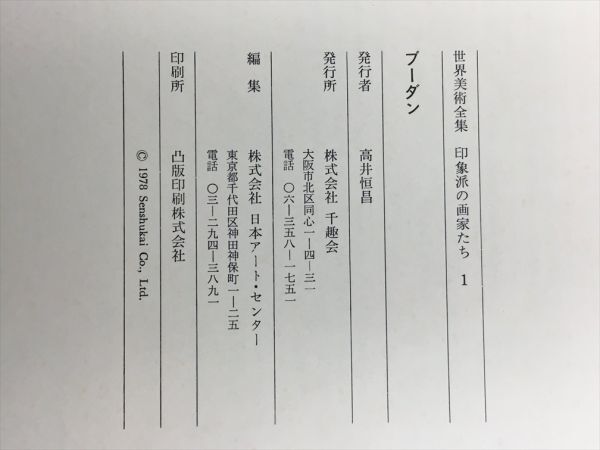 世界美術全集 印象派の画家たち 1
ブーダン
発行者 高井恒昌
発行所 株式会社 千趣会
大阪市北区同心一—四—三一
電話 〇六—三五八—一七五一
編集 株式会社 日本アート・センター
東京都千代田区神田神保町一—二五
電話 〇三—二九四—三八九一
印刷所 凸版印刷株式会社
© 1978 Senshukai Co., Ltd.